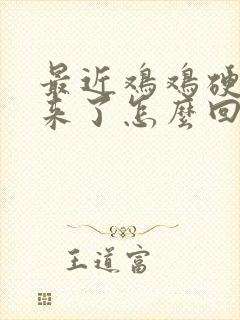 最近鸡鸡硬
来了怎麼回
王道富